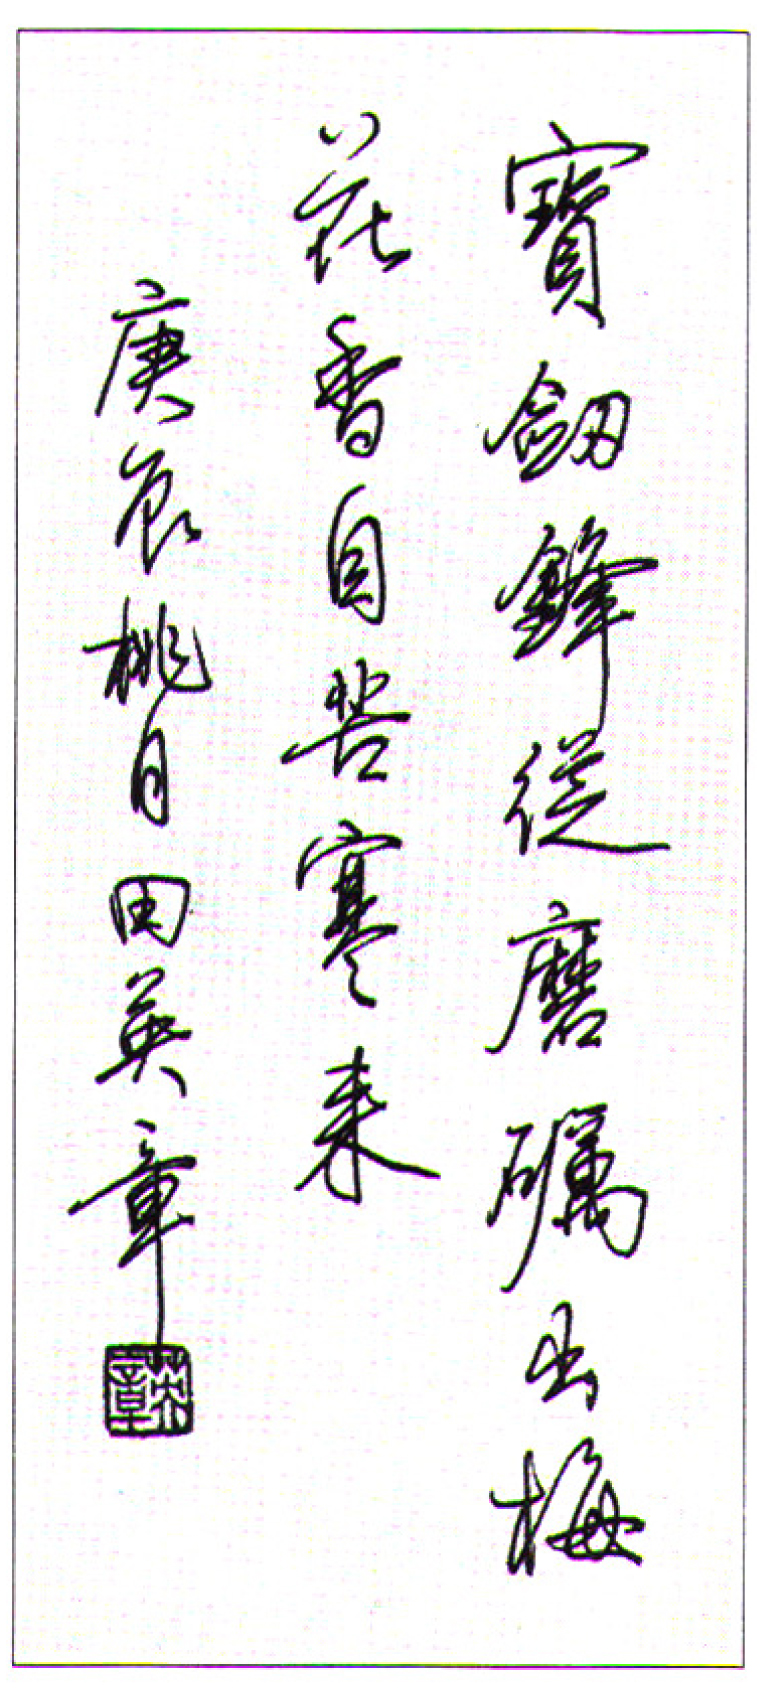 寶劒鋒從磨礪出梅
花香自苦寒来
庚辰桃月田英章
英章